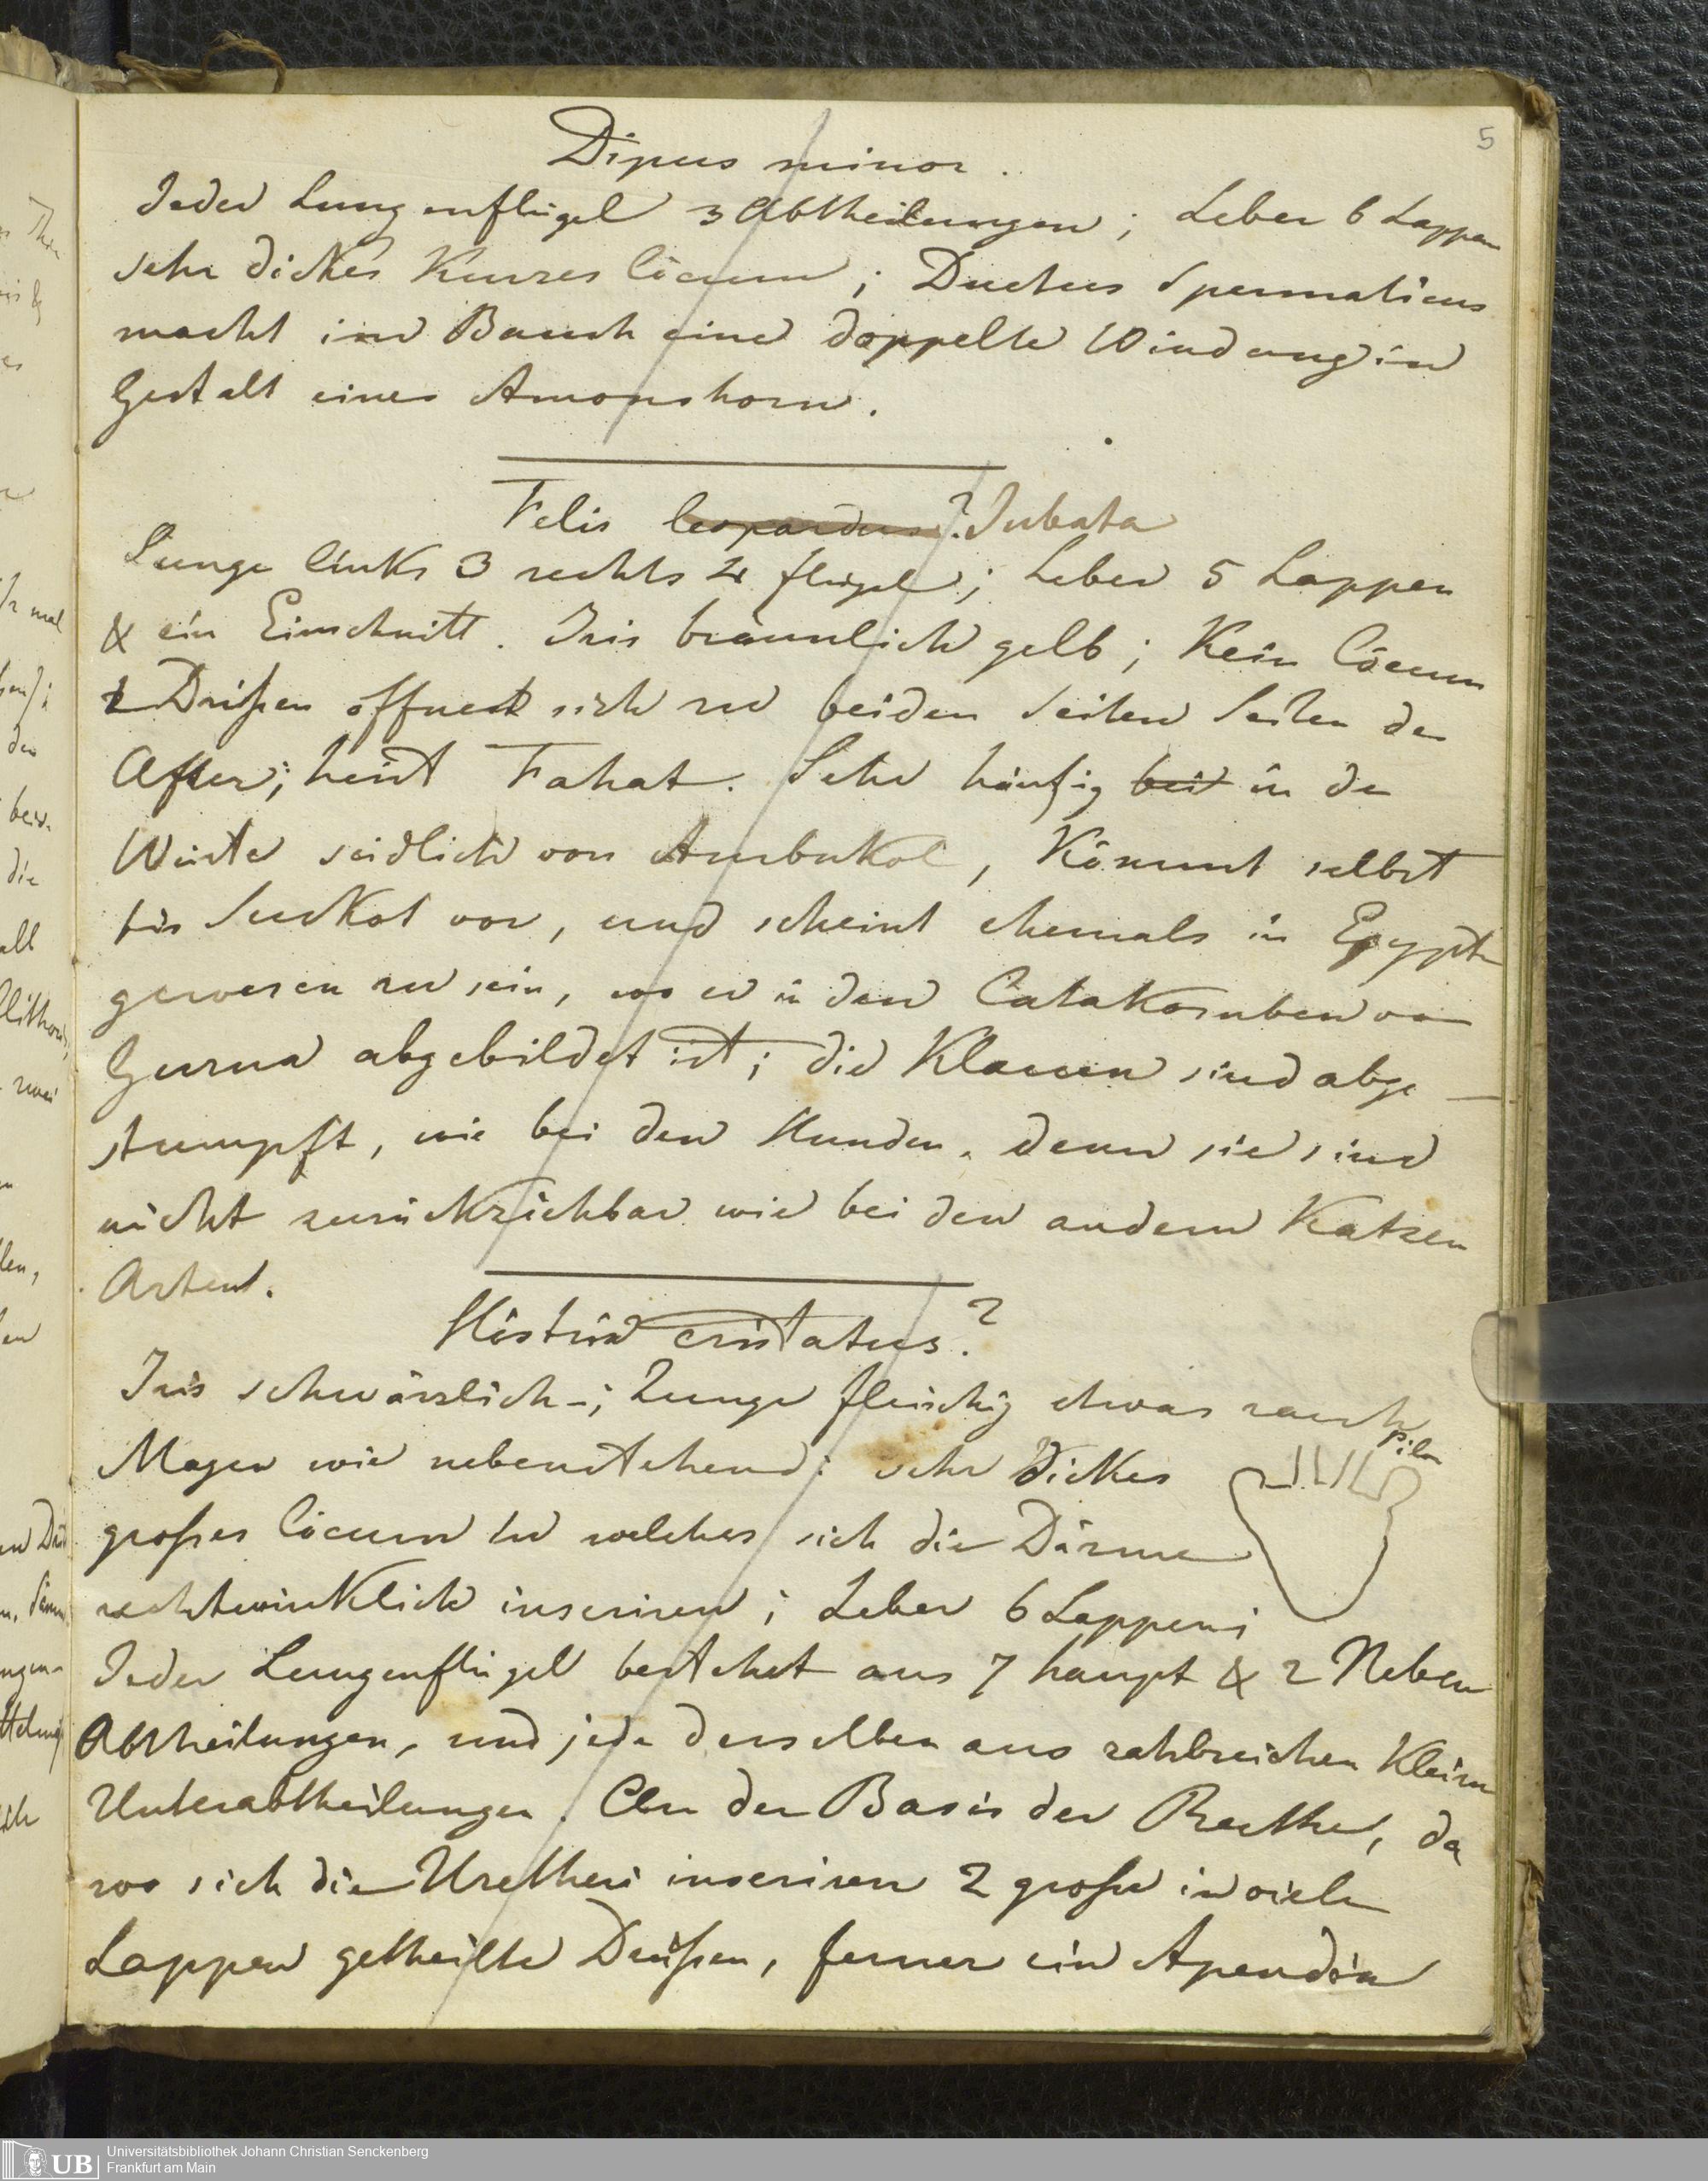 5
Dipus minor.
Jeder Lungenflügel 3 Abtheilungen; Leber 6 Lappen
sehr dickes Kurzes Cöcum; Ductus Spermaticus
macht im Bauch eine doppelte Windung in
Gestalt eines Amonshorn.
Felis leopardus? Jubata
Lunge links 3 rechts 4 flügel; Leber 5 Lappen
& ein Einschnitt. Iris bräunlich gelb; Kein Cöcum
2 Drüßen öffnen sich zu beiden Seiten Seiten der
After; heist Fahat. Sehr häufig bei in der
Wüste südlich von Ambukol, Kömmt selbst
bis Sukkot vor, und scheint ehemals in Egypten
gewesen zu sein, wo er in den Catakomben von
Gurna abgebildet ist; die Klauen sind abge-
stumpft, wie bei den Hunden, denn sie sind
nicht zurückzichbar wie bei den andern Katzen
Arten.
Histrix cristatus?
Iris schwärzlich; Zunge fleischig etwas rauch
Magen wie nebenstehend: sehr dickes
pilor
großes Cöcum in welches sich die Därme
rechtwinklich inseriren; Leber 6 Lappen;
Jeder Lungenflügel bestehet aus 7 haupt & 2 Neben
Abtheilungen, und jede derselben aus zahlreichen Kleinen
Unterabtheilungen. An der Basis der Ruthe, da
wo sich die Uretheri inseriren 2 große in viele
Lappen getheilte Drüßen, ferner ein Apendix
Universitätsbibliothek Johann Christian Senckenberg
UB Frankfurt am Main